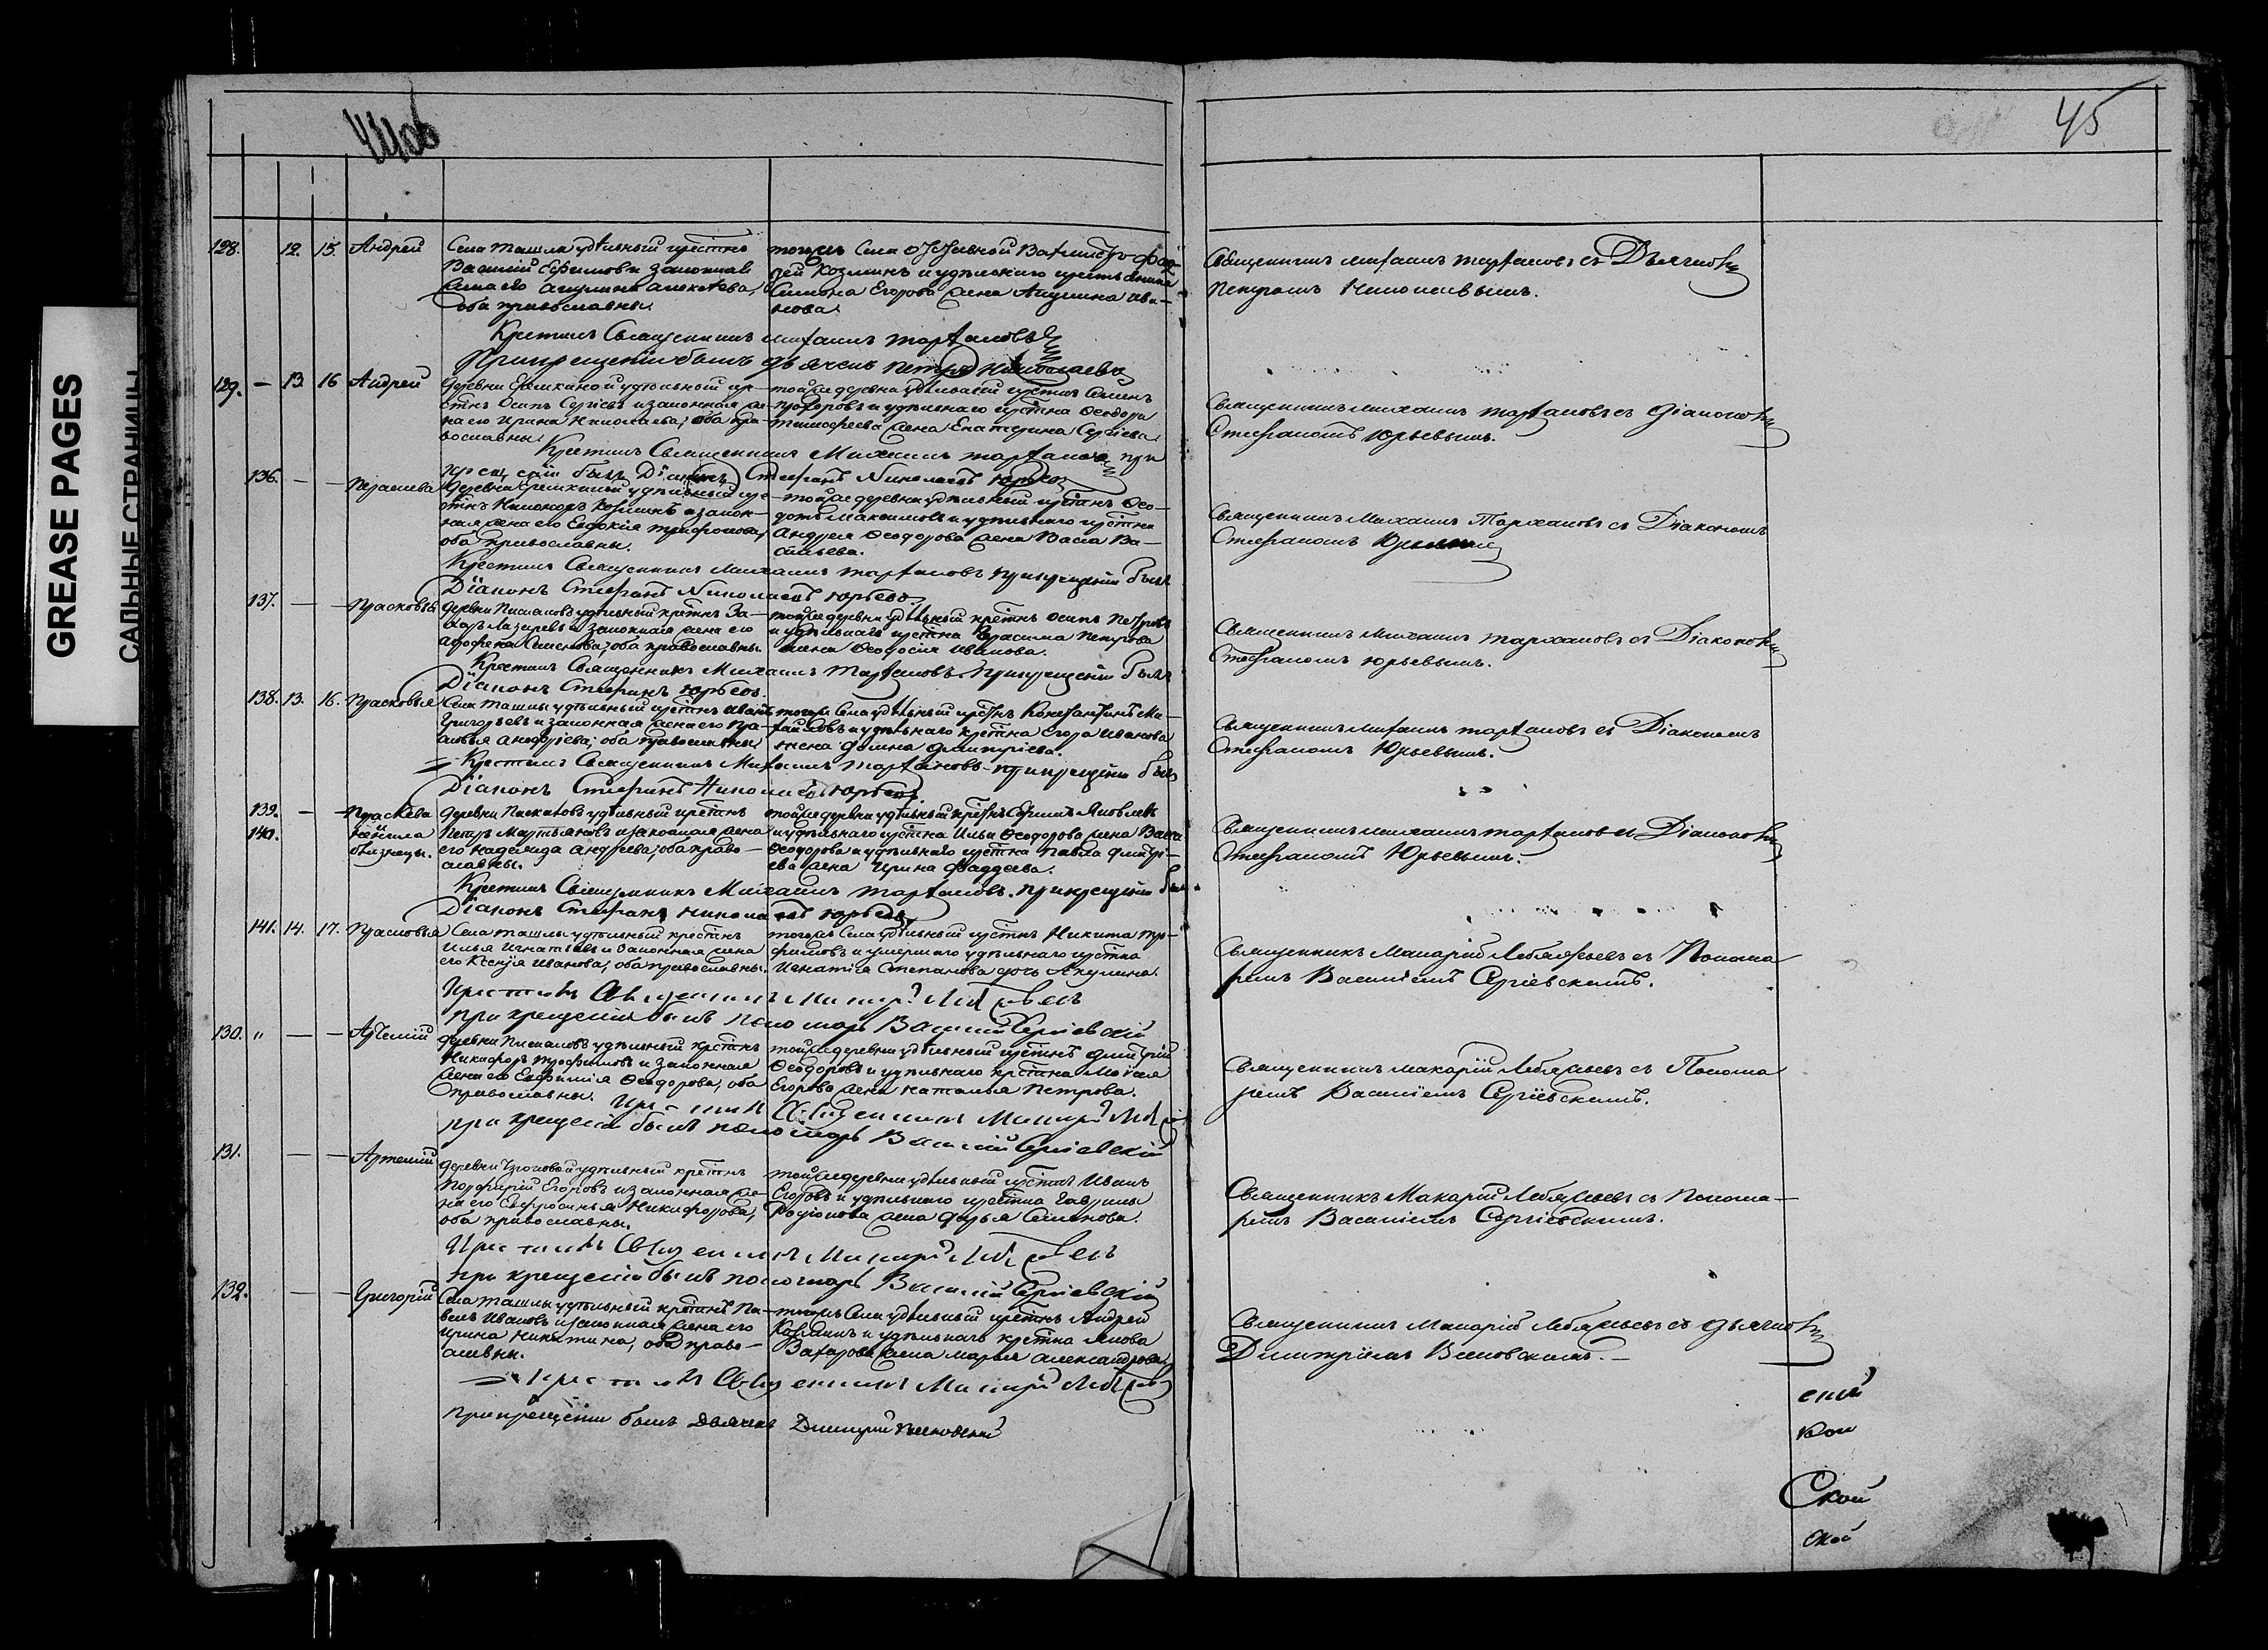 GREASE PAGES
САЛЬНЫЕ СТРАНИЦЫ
44об
45
128. 12. 15. Андрей
Села Ташлы удѣльный крестнъ
Василій Ефимовъ и законная
жена его Акулина Алексѣева,
оба православны.
тогоже Села
Козминъ и удѣльнаго
Симіона Егорова жена Акулина Ива-
нова.
Священникъ Михаилъ Тархановъ съ Дьячкомъ
Петромъ Николаевымъ.
Крестилъ Священникъ Михаилъ Тархановъ
При крещеніи былъ дьячекъ Петръ Николаевъ
129. — 13. 16 Андрей
деревни удѣльный кре-
стнъ Осипъ Сергіевъ и законная же-
на его Ирина Николаева; оба пра-
вославны.
тойже деревни удѣльный крестнъ Семенъ
Прохоровъ и удѣльнаго крестна Ѳеодора
Тимофеева жена Екатерина Сергіева
Священникъ Михаилъ Тархановъ съ Діакономъ
Стефаномъ Юрьевымъ.
Крестилъ Священникъ Михаилъ Тархановъ при
крещеніи былъ Діаконъ Стефанъ Николаевъ Юрьевъ
136. — — Параскева
деревни удѣльный кре-
стнъ Никаноръ Козминъ и закон-
ная жена его Евдокія Трифонова,
оба православны.
тойже деревни удѣльный крестнъ Ѳео-
дотъ Максимовъ и удѣльнаго крестна
Андрея Ѳеодорова жена Васса Ва-
сильева.
Священникъ Михаилъ Тархановъ съ Діакономъ
Стефаномъ
Крестилъ Священникъ Михаилъ Тархановъ при крещеніи былъ
Діаконъ Стефанъ Николаевъ Юрьевъ.
137. — — Прасковья
деревни Пискаловъ удѣльный крестнъ За-
харъ Лазаревъ и законная жена его
Агрофена Семенова; оба православны.
тойже деревни удѣльный крестнъ Осипъ Петровъ
и удѣльнаго крестна Герасима Петрова
жена Ѳеодосія Иванова.
Священникъ Михаилъ Тархановъ съ Діакономъ
Стефаномъ Юрьевымъ.
Крестилъ Священникъ Михаилъ Тархановъ. При крещеніи былъ
Діаконъ Стефанъ Юрьевъ.
138. 13. 16. Прасковья
Села Ташлы удѣльный крестнъ Иванъ
Григорьевъ и законная жена его
оба православны
тогоже Села удѣльный крестнъ Константинъ Ми-
хайловъ и удѣльнаго крестна Егора Иванова
жена Домна Дмитріева.
Священникъ Михаилъ Тархановъ съ Діакономъ
Стефаномъ Юрьевымъ.
Крестилъ Священникъ Михаилъ Тархановъ при крещеніи былъ
Діаконъ Стефанъ Николаевъ Юрьевъ.
139. — — Параскева
140. Неонила
близнецы.
деревни Пискаловъ удѣльный крестнъ
Петръ Мартьяновъ и законная жена
его Надежда Андреева; оба право-
славны.
тойже деревни удѣльный крестнъ Ефимъ Яковлевъ
и удѣльнаго крестна Ильи Ѳеодорова жена Васса
Ѳеодорова и удѣльнаго крестна Павла Дмитрі-
ева жена Ирина Фаддеева.
Священникъ Михаилъ Тархановъ съ Діакономъ
Стефаномъ Юрьевымъ.
Крестилъ Священникъ Михаилъ Тархановъ. При крещеніи былъ
Діаконъ Стефанъ Николаевъ Юрьевъ
141. 14. 17. Прасковья
Села Ташлы удѣльный крестнъ
Илья Игнатьевъ и законная жена
его Ксенія Иванова; оба православны.
тогоже Села удѣльный крестнъ Никита Тро-
фимовъ и умершаго удѣльнаго крестна
Игнатія Степанова дочь Акулина.
Священникъ Макарій Лебяжьевъ съ Понома
ремъ Василіемъ Сергіевскимъ.
Крестилъ Священникъ Макарій Лебяжьевъ
при крещеніи былъ пономарь Василій Сергіевскій
130. " — — Артемій
деревни Пискаловъ удѣльный крестнъ
Никифоръ Трофимовъ и законная
жена его Евфимія Ѳеодорова, оба
православны.
тойже деревни удѣльный крестнъ Дмитрій
Ѳеодоровъ и удѣльнаго крестна Моисея
Егорова жена Наталья Петрова.
Священникъ Макарій Лебяжьевъ съ Понома
ремъ Василіемъ Сергіевскимъ.
Крестилъ Священникъ Макарій
при крещеніи былъ пономарь Василій Сергіевскій
131. — — Артемій
деревни удѣльный крестнъ
Порфирій Егоровъ и законная же-
на его Евфросинья Никифорова,
оба православны.
тойже деревни удѣльный крестнъ Иванъ
Егоровъ и удѣльнаго крестна Гаврилы
Родіонова жена Дарья Семенова.
Священникъ Макарій Лебяжьевъ съ Понома-
ремъ Василіемъ Сергіевскимъ.
Крестилъ Священникъ Макарій Лебяжьевъ
при крещеніи былъ пономарь Василій Сергіевскій
132. — — Григорій
Села Ташлы удѣльный крестнъ Па-
велъ Ивановъ и законная жена его
Ирина Никитина, оба право-
славны.
тогоже Села удѣльный крестнъ Андрей
Козминъ и удѣльнаго крестна Якова
Захарова жена Марья Александрова
Священникъ Макарій Лебяжьевъ съ дьячкомъ
Димитріемъ
Крестилъ Священникъ Макарій
при крещеніи былъ Дьячекъ Димитрій
ской
Ской
ской